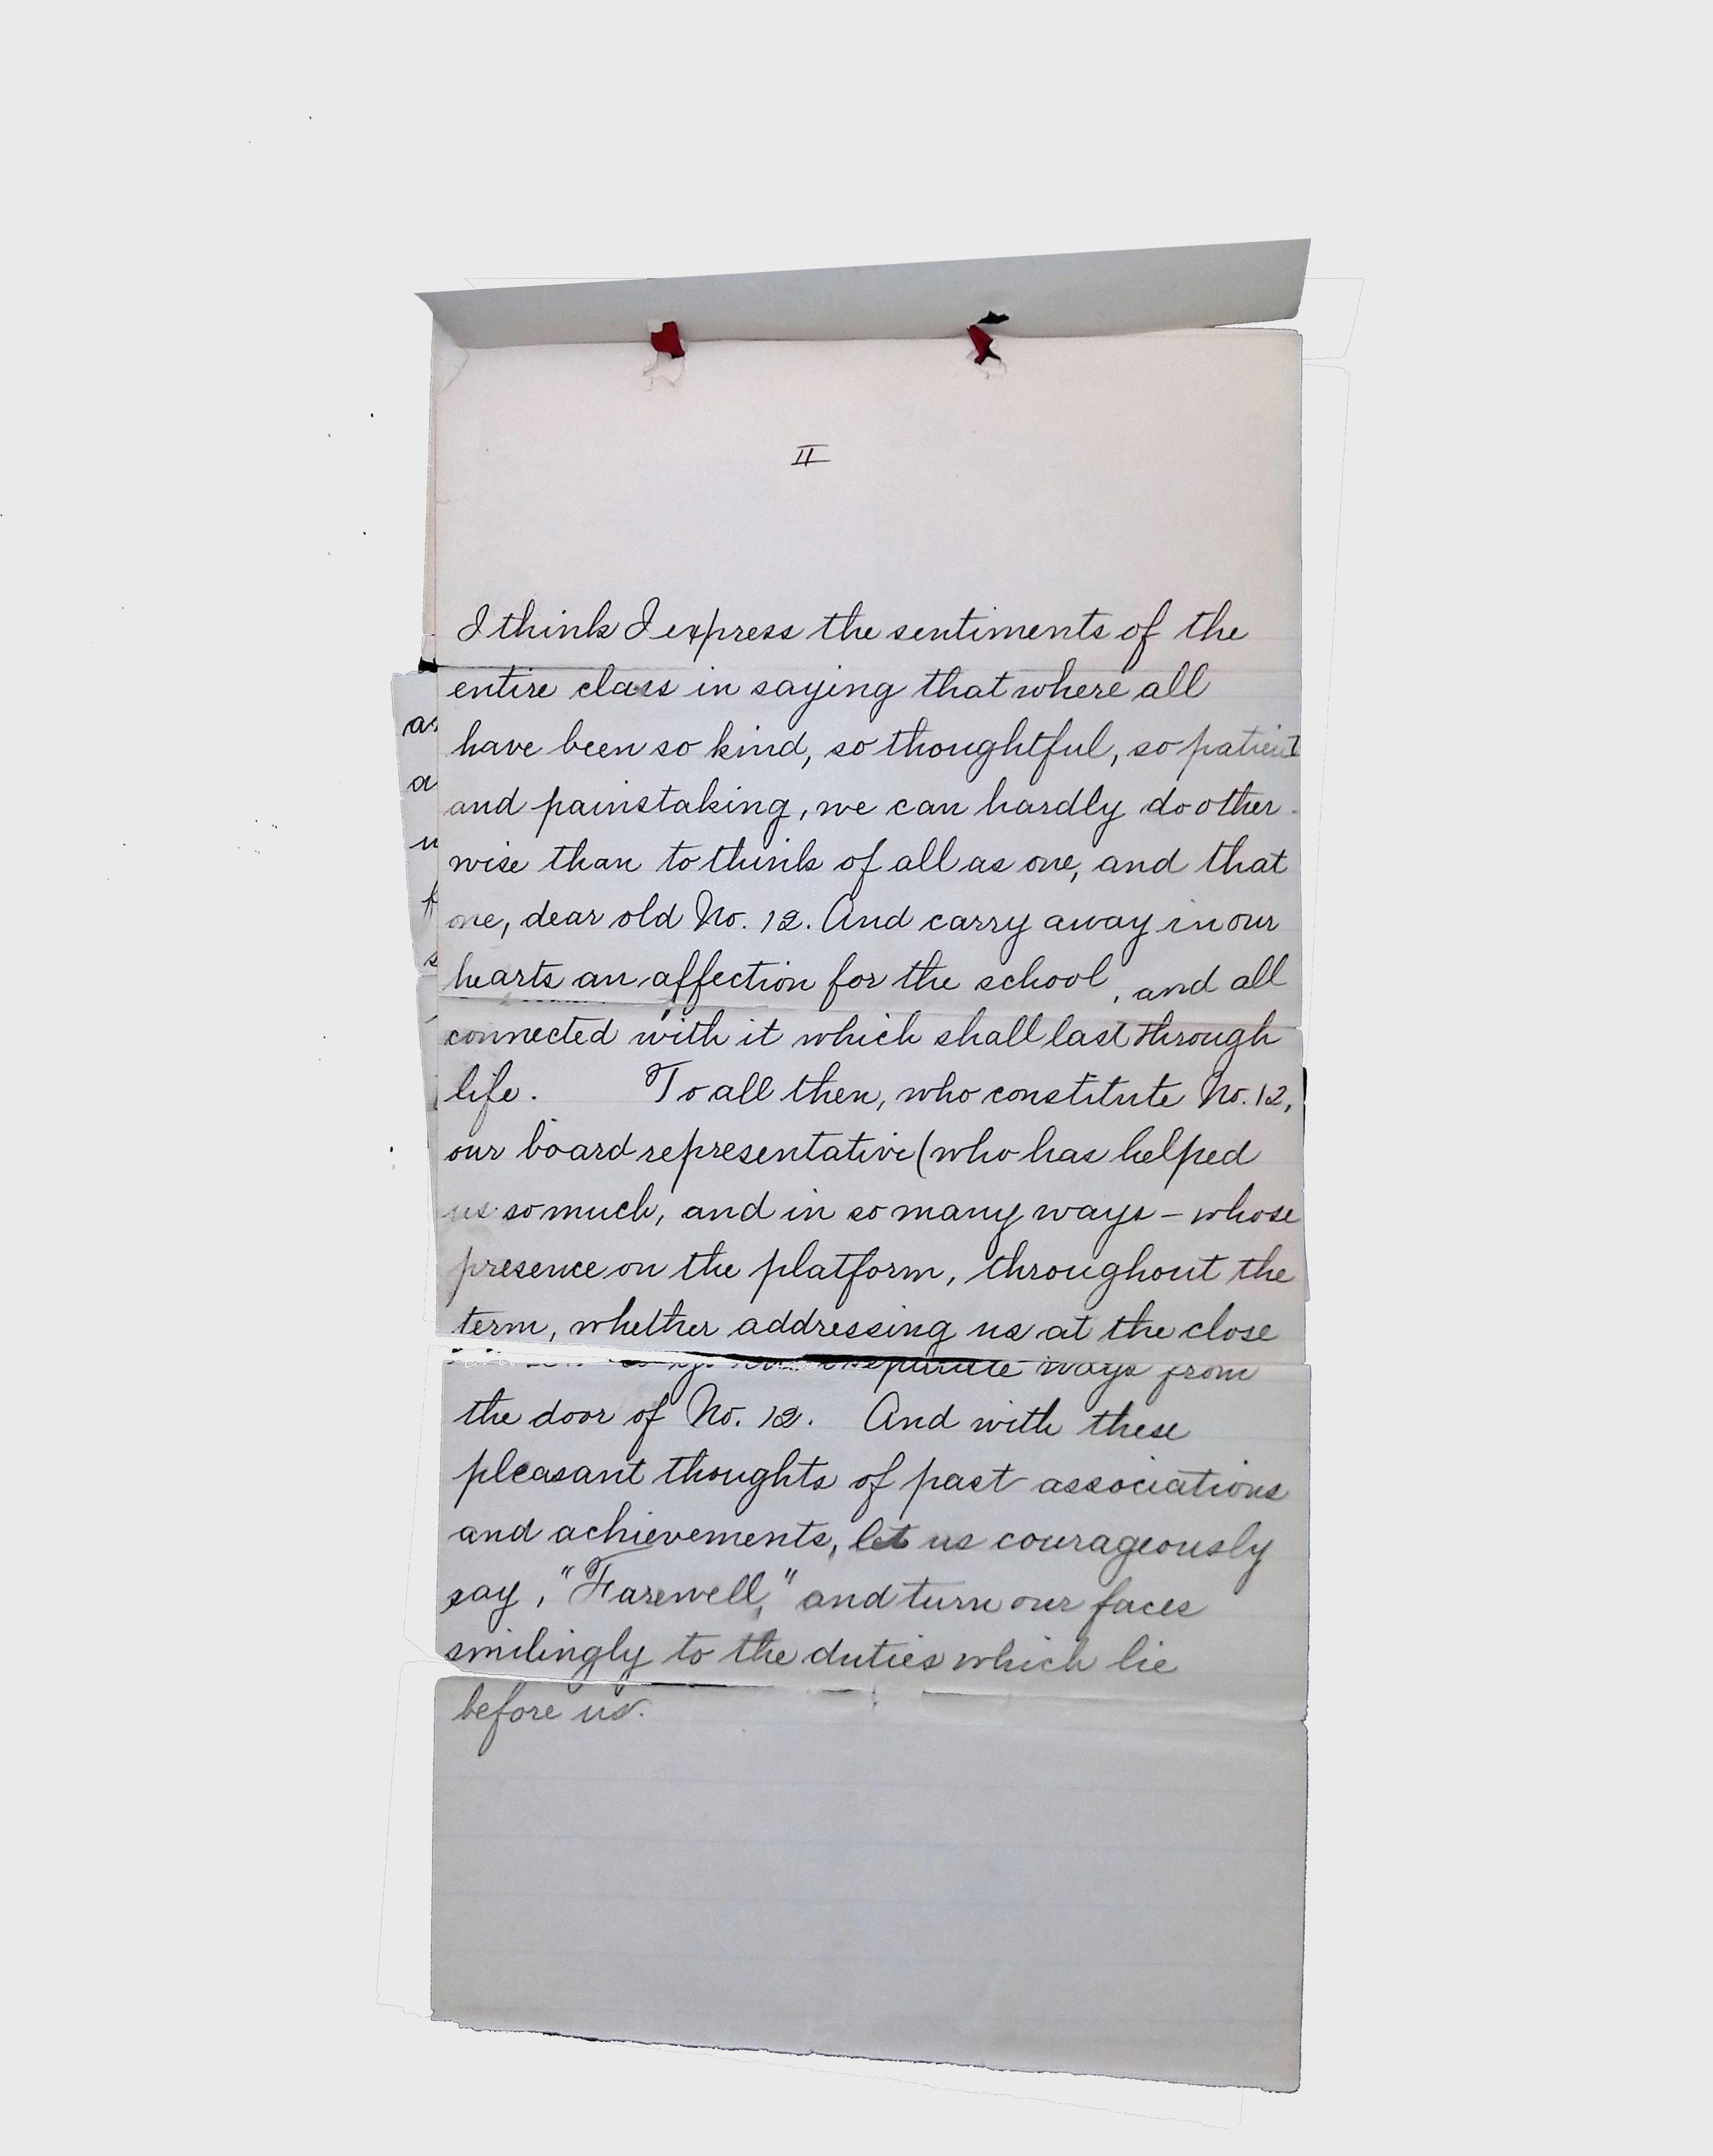 II
I think I express the sentiments of the
entire class in saying that where all
have been so kind, so thoughtful, so patient
and painstaking, we can hardly do other-
wise than to think of all as one, and that
one, dear old No. 12. And carry away in our
hearts an affection for the school, and all
connected with it which shall last through
life. To all then, who constitute No. 12,
our board representative (who has helped
us so much, and in so many ways – whose
presence on the platform, throughout the
term, whether addressing us at the close
separate ways from
the door of No. 12. And with these
pleasant thoughts of past associations
and achievements, let us courageously
say, "Farewell," and turn our faces
smilingly to the duties which lie
before us.